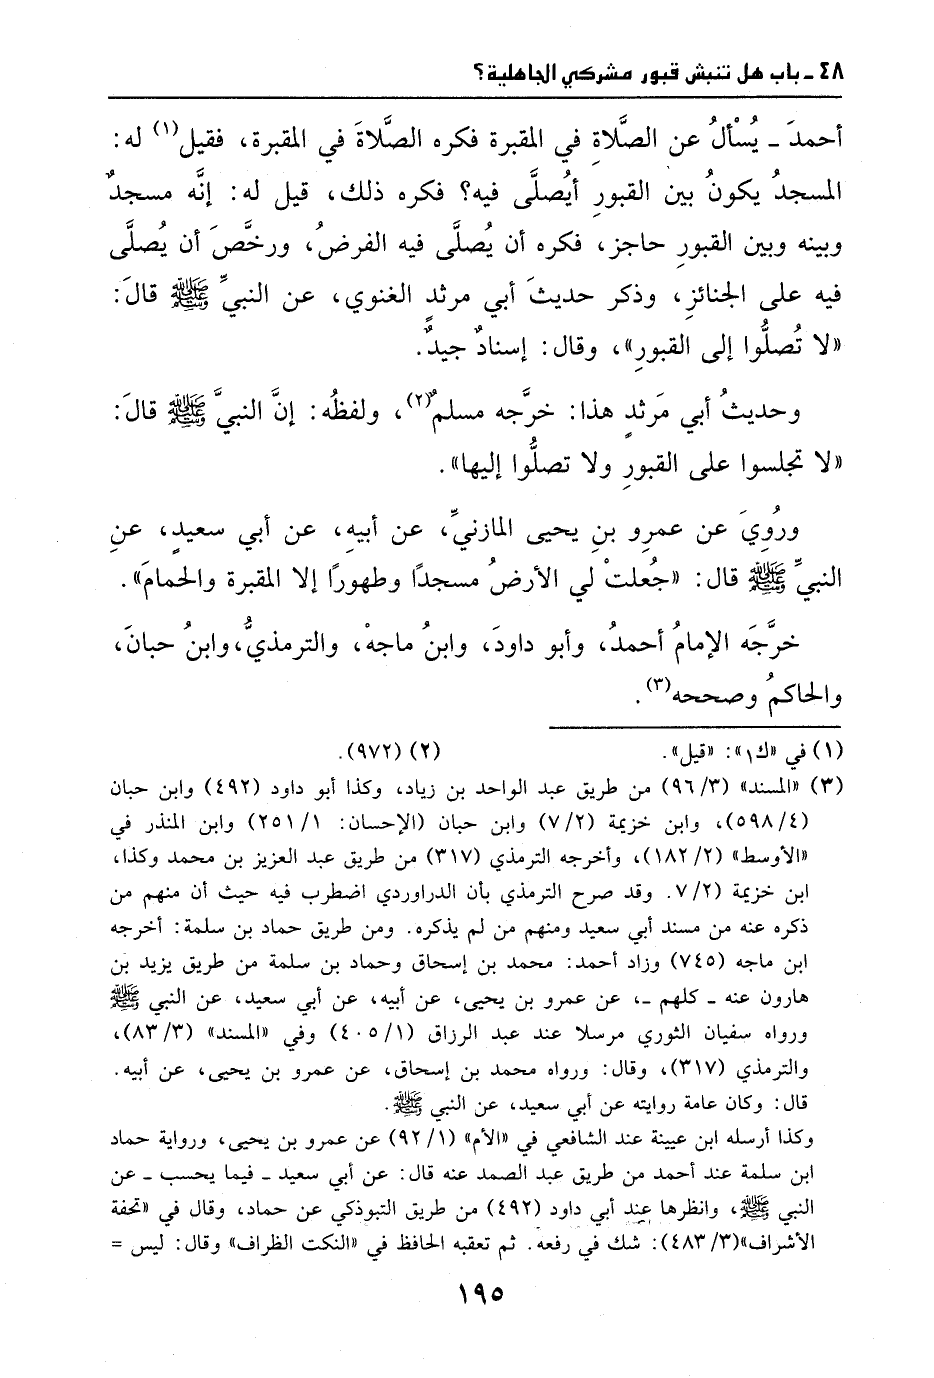 ٤٨ - باب هل تنبش قبور مشركي الجاهلية؟
أحمدَ - يُسْألُ عن الصَّلاةِ في المقبرة فكره الصَّلاةَ في المقبرة، فقيل(١) له:
المسجدُ يكونُ بين القبورِ أيُصلَّى فيه؟ فكره ذلك، قيل له: إنَّه مسجدٌ
وبينه وبين القبورِ حاجز، فكره أن يُصلَّى فيه الفرضُ، ورخَّصَ أن يُصلَّى
فيه على الجنائزِ، وذكر حديثَ أبي مرثدٍ الغنوي، عن النبيِّ ﷺ قالَ:
«لا تُصلُّوا إلى القبورِ»، وقال: إسنادٌ جيدٌ.
وحديثُ أبي مَرثدٍ هذا: خرَّجه مسلمٌ(٢)، ولفظُه: إنَّ النبيَّ ﷺ قالَ:
«لا تجلسوا على القبورِ ولا تصلُّوا إليها».
ورُوِيَ عن عمرِو بنِ يحيى المازنيِّ، عن أبيهِ، عن أبي سعيدٍ، عنِ
النبيِّ ﷺ قال: «جُعلتْ لي الأرضُ مسجدًا وطهورًا إلا المقبرة والحمامَ».
خرَّجَه الإمامُ أحمدُ، وأبو داودَ، وابنُ ماجهْ، والترمذيُّ، وابنُ حبانَ،
والحاكمُ وصححه(٣).
(١) في «ك١»: «قيل». (٢) (٩٧٢).
(٣) «المسند» (٩٦/٣) من طريق عبد الواحد بن زياد، وكذا أبو داود (٤٩٢) وابن حبان
(٥٩٨/٤)، وابن خزيمة (٧/٢) وابن حبان (الإحسان: ٢٥١/١) وابن المنذر في
«الأوسط» (١٨٢/٢)، وأخرجه الترمذي (٣١٧) من طريق عبد العزيز بن محمد وكذا،
ابن خزيمة (٧/٢. وقد صرح الترمذي بأن الدراوردي اضطرب فيه حيث أن منهم من
ذكره عنه من مسند أبي سعيد ومنهم من لم يذكره. ومن طريق حماد بن سلمة: أخرجه
ابن ماجه (٧٤٥) وزاد أحمد: محمد بن إسحاق وحماد بن سلمة من طريق يزيد بن
هارون عنه - كلهم -، عن عمرو بن يحيى، عن أبيه، عن أبي سعيد، عن النبي ﷺ
ورواه سفيان الثوري مرسلا عند عبد الرزاق (٤٠٥/١) وفي «المسند» (٨٣/٣)،
والترمذي (٣١٧)، وقال: ورواه محمد بن إسحاق، عن عمرو بن يحيى، عن أبيه.
قال: وكان عامة روايته عن أبي سعيد، عن النبي ﷺ.
وكذا أرسله ابن عيينة عند الشافعي في «الأم» (٩٢/١) عن عمرو بن يحيى، ورواية حماد
ابن سلمة عند أحمد من طريق عبد الصمد عنه قال: عن أبي سعيد - فيما يحسب - عن
النبي ﷺ، وانظرها عند أبي داود (٤٩٢) من طريق التبوذكي عن حماد، وقال في «تحفة
الأشراف»(٤٨٣/٣): شك في رفعه. ثم تعقبه الحافظ في «النكت الظراف» وقال: ليس =
١٩٥